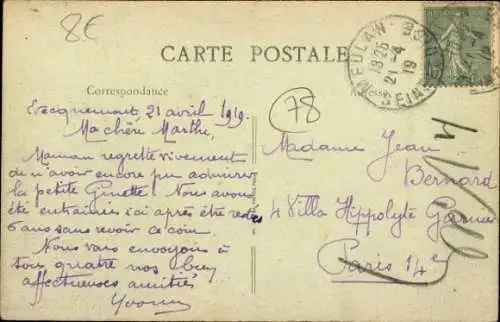 8€
CARTE POSTALE
MEULAN
18 25
21 - 4
19
SEINE
Correspondance
Adresse
78
Evecquemont, 21 avril 1919.
Ma chère Marthe,
Maman regrette vivement
de n'avoir encore pu admirer
la petite Ginette Nous avons
été entraînés ici après être restés
6 ans sans revoir ce coin.
Nous vous envoyons à
tous quatre nos bien
affectueuses amitiés
Yvonne
Madame Jean
Bernard
4 Villa Hippolyte
Paris 14e